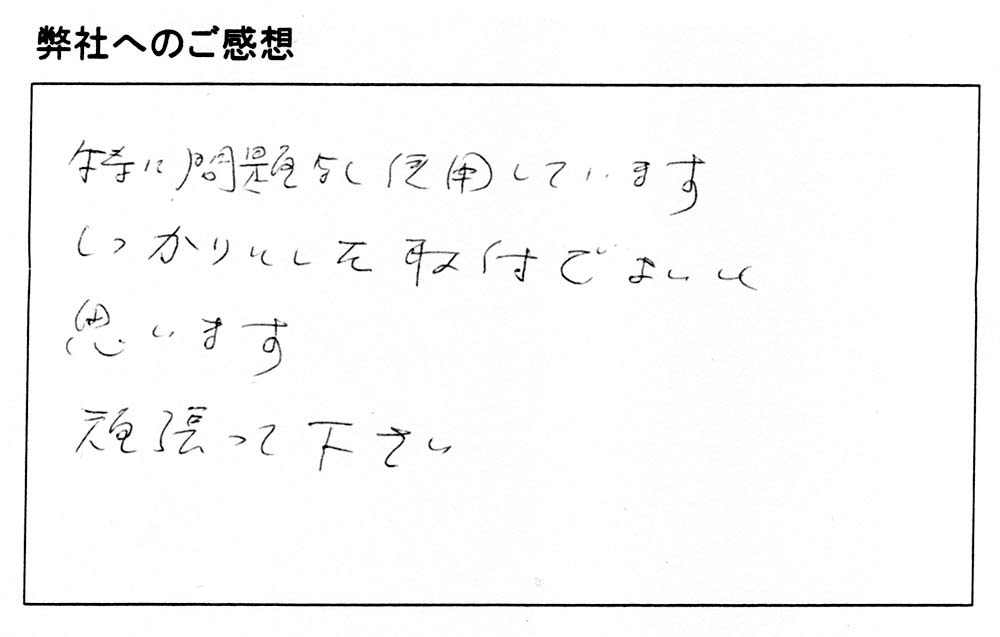 弊社へのご感想
特に問題なく使用しています
しっかりとした取付でよいと
思います
頑張って下さい